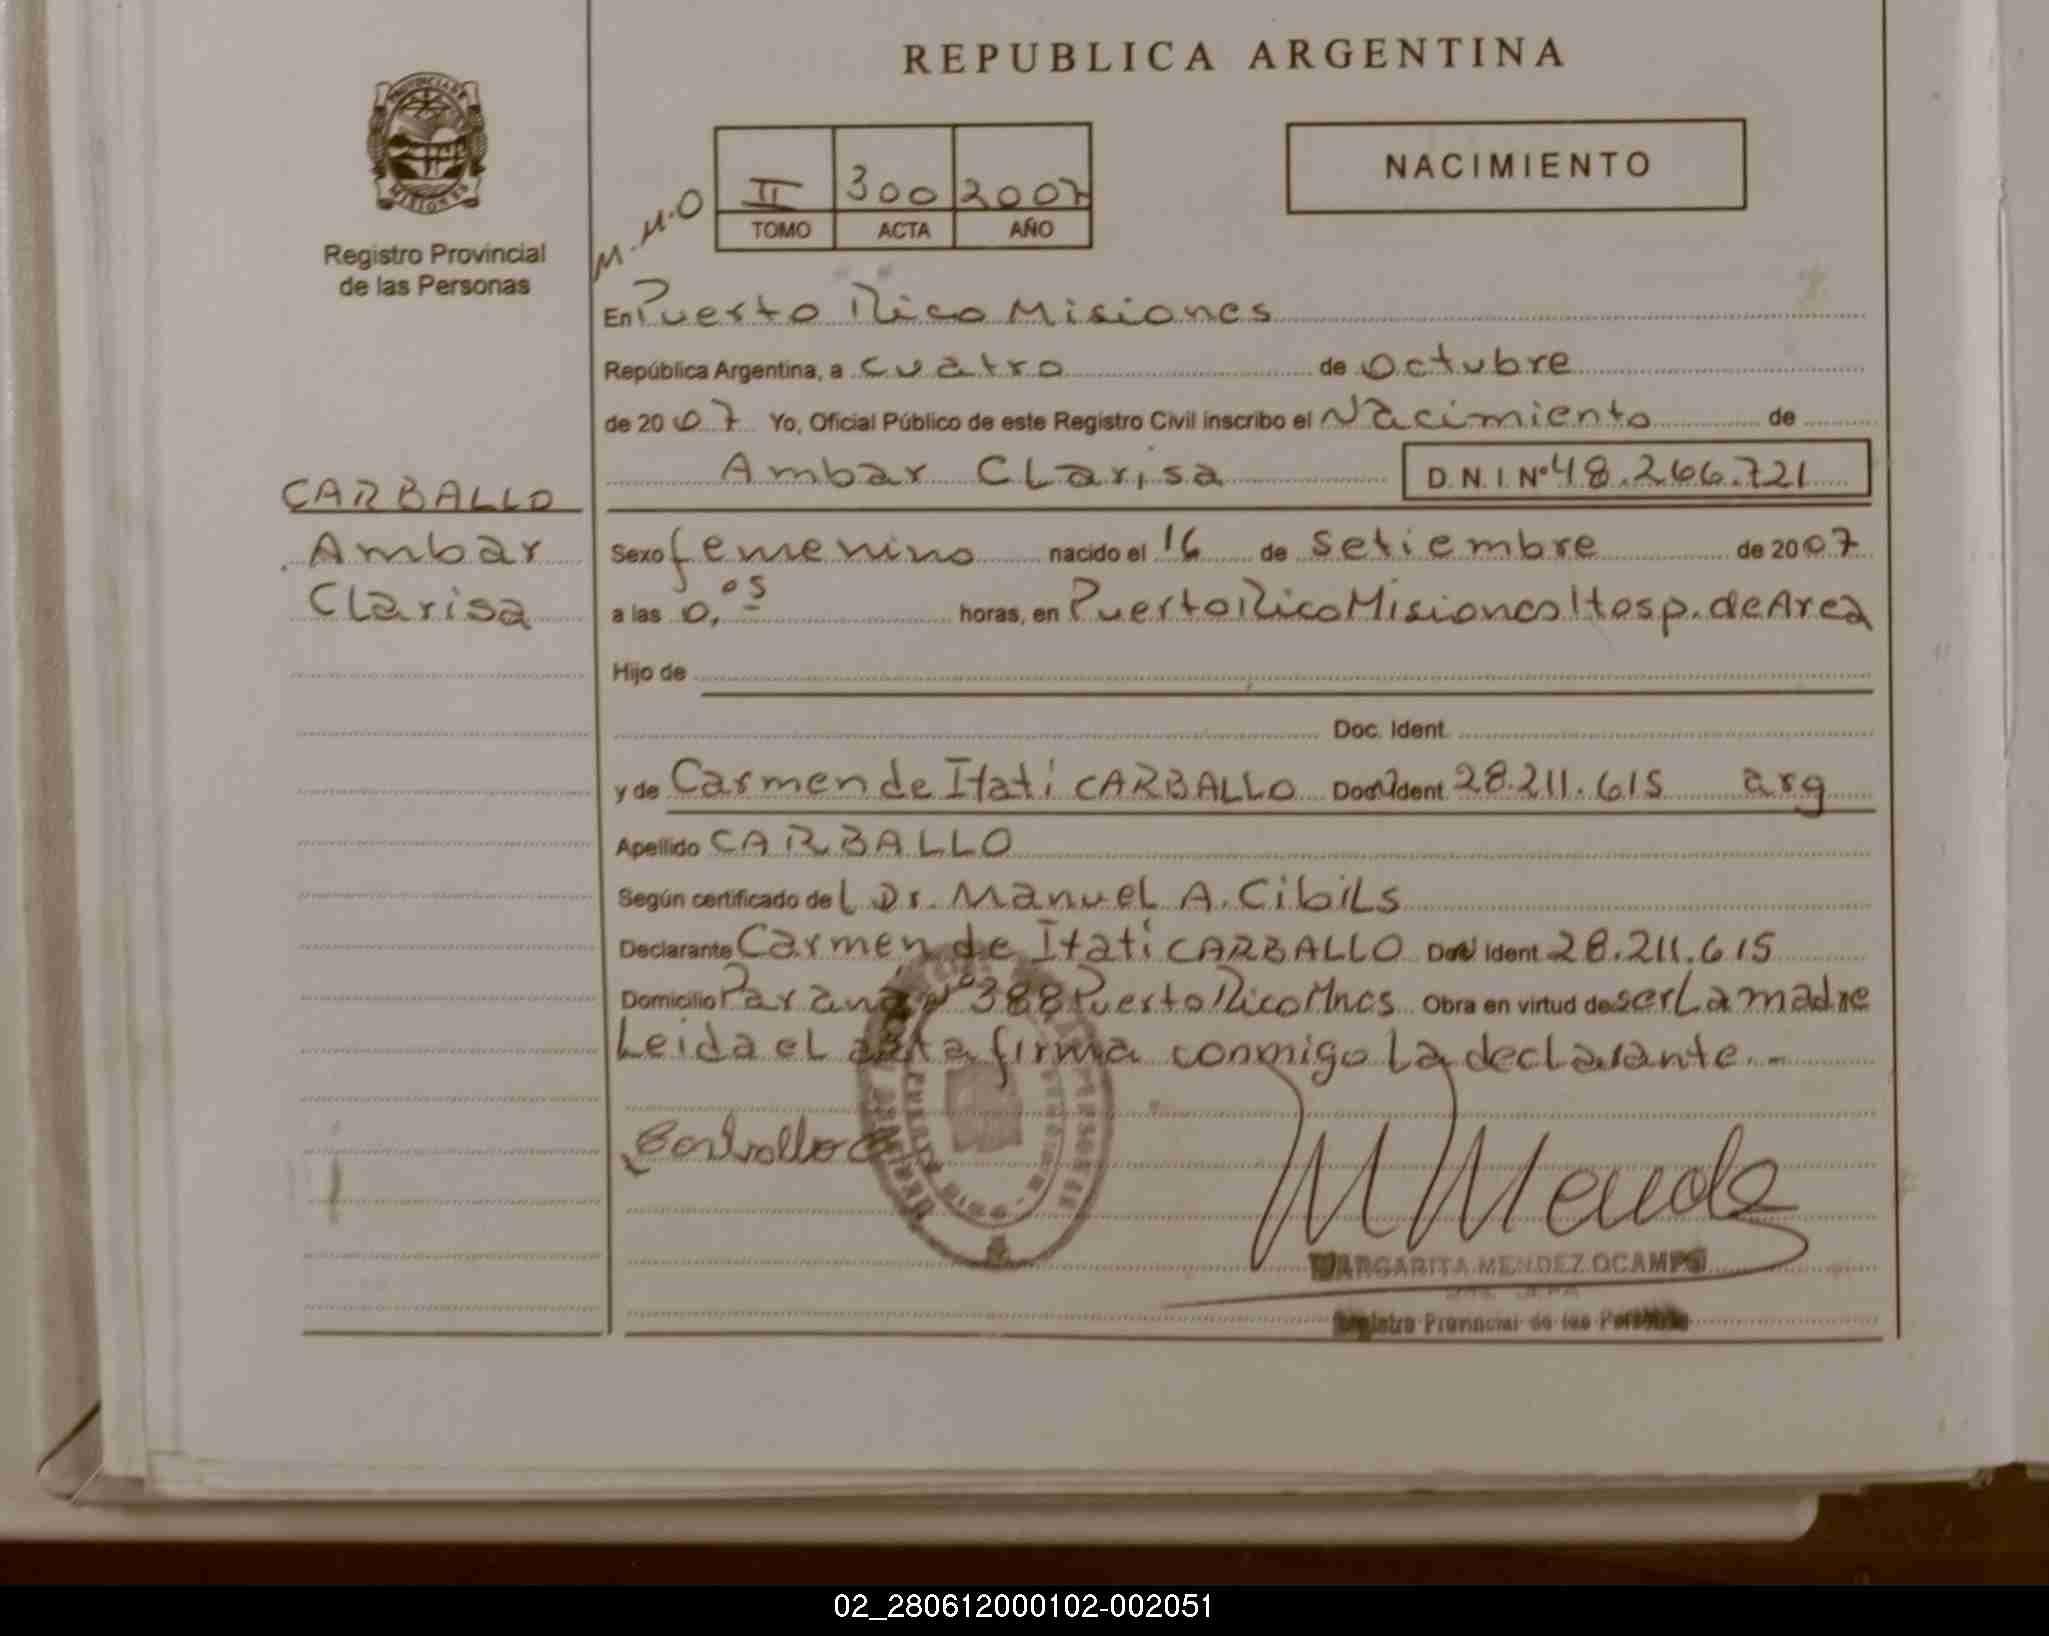 REPUBLICA ARGENTINA
PROVINCIA DE
MISIONES
Registro Provincial
de las Personas
NACIMIENTO
M.M.O
II 300 2007
TOMO ACTA AÑO
En Puerto Rico Misiones
República Argentina, a cuatro de octubre
de 2007 Yo, Oficial Público de este Registro Civil inscribo el Nacimiento de
Ambar Clarisa D.N.I. Nº 48.266.721
CARBALLO
Ambar
Clarisa
Sexo femenino nacido el 16 de setiembre de 2007
a las 0,05 horas, en Puerto Rico Misiones Hosp. de Area
Hijo de
Doc. Ident.
y de Carmen de Itati CARBALLO Doc. Ident 28.211.615 arg
Apellido CARBALLO
Según certificado del Dr. Manuel A. Cibils
Declarante Carmen de Itati CARBALLO Ident 28.211.615
Domicilio Parana Nº 388 Puerto Rico Mnes. Obra en virtud de ser La madre
Leida el acta firma conmigo La declarante.-
Carballo C
M Mende
MARGARITA MENDEZ OCAMPO
Registro Provincial de las Personas
02_280612000102-002051